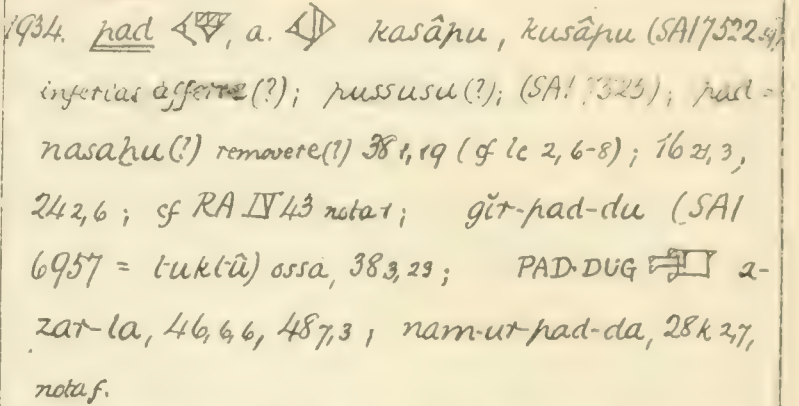 1934. pad 𒉻, a. kasâpu, kusâpu (SAI 7522 sq)
inferias afferre (?); pussusu (?); (SAI 7325); pad =
nasaḫu (?) removere (?) 38 1, 19 (cf lc 2, 6-8); 16 21, 3,
24 2, 6; cf RA IV 43 nota 1; gĭr-pad-du (SAI
6957 = l-uklû) ossa, 38 3, 23; PAD·DUG a-
zar-la, 46, 6, 6, 48 7, 3; nam-ur-pad-da, 28 k 2 7,
nota f.